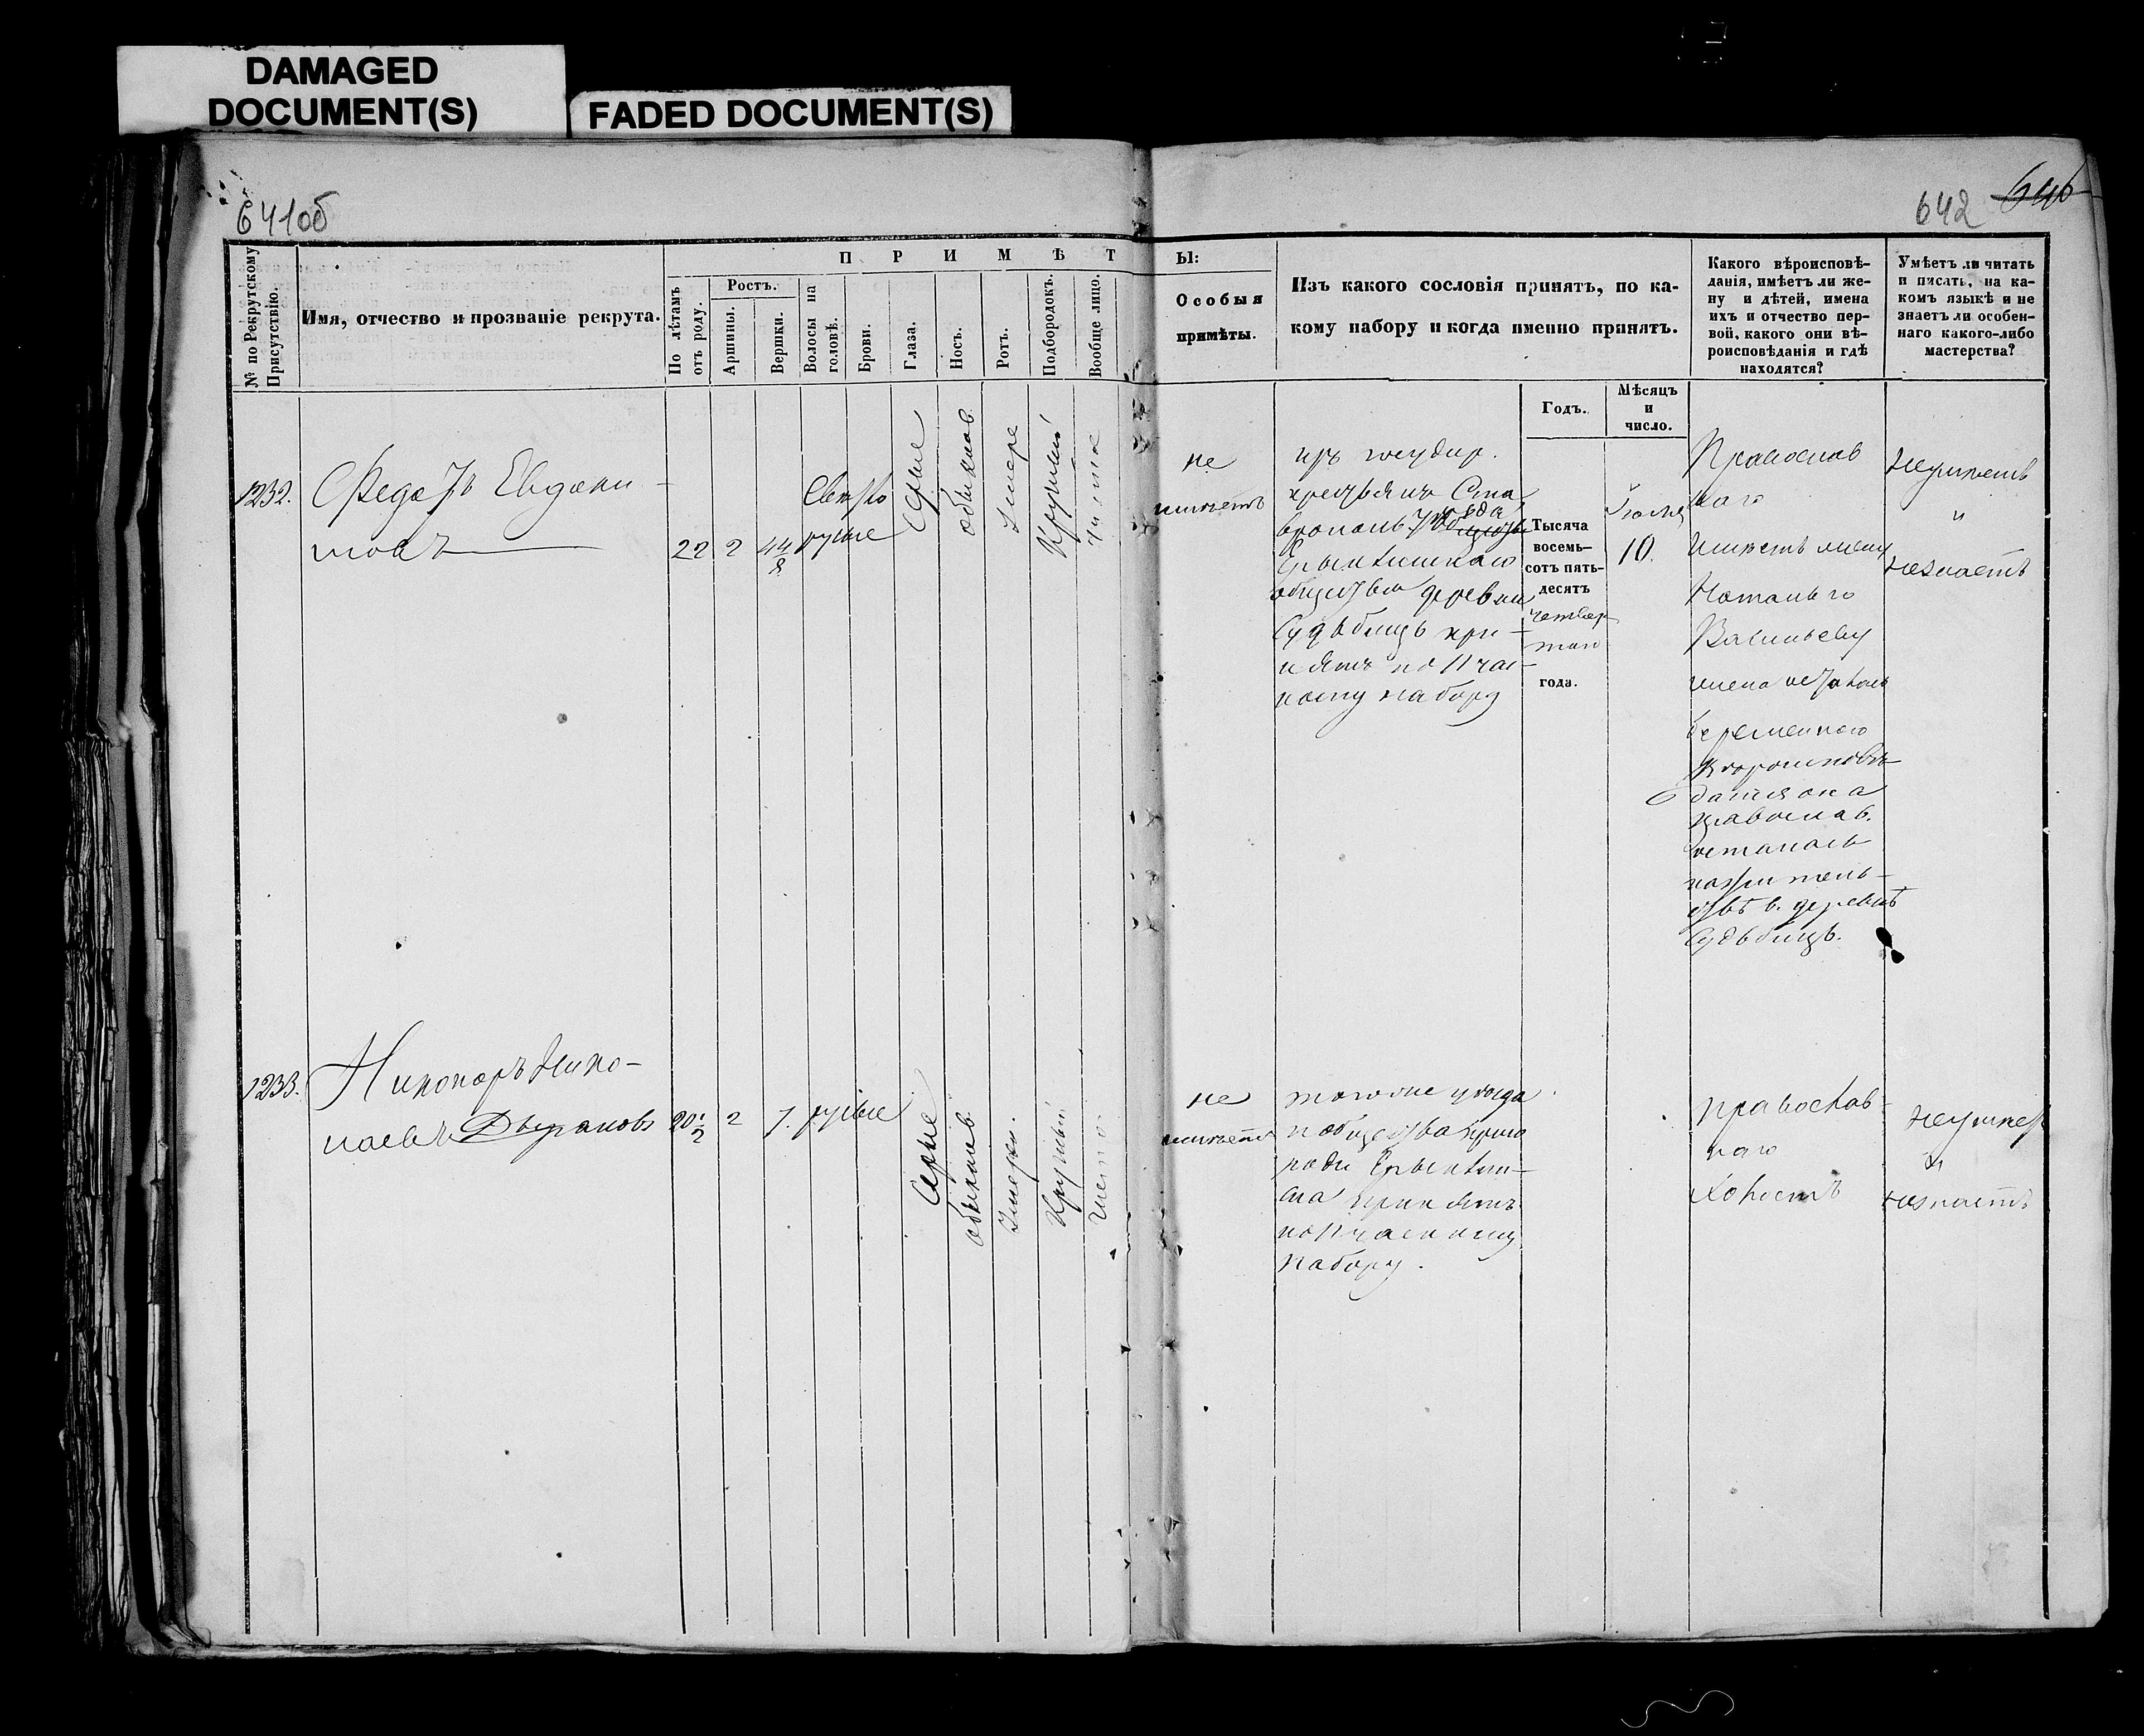 DAMAGED
DOCUMENT(S)
FADED DOCUMENT(S)
641об
642 646
№ по Рекрутскому Присутствію.
Имя, отчество и прозваніе рекрута.
П Р И М Ѣ Т Ы:
По лѣтамъ отъ роду.
Ростъ.
Аршины.
Вершки.
Волосы на головѣ.
Брови.
Глаза.
Носъ.
Ротъ.
Подбородокъ.
Вообще лицо.
Особыя
примѣты.
Изъ какого сословія принятъ, по ка-
кому набору и когда именно принятъ.
Годъ.
Мѣсяцъ
и
число.
Какого вѣроисповѣ-
данія, имѣетъ ли же-
ну и дѣтей, имена
ихъ и отчество пер-
вой, какого они вѣ-
роисповѣданія и гдѣ
находятся?
Умѣетъ ли читать
и писать, на ка-
комъ языкѣ и не
знаетъ ли особен-
наго какого-либо
мастерства?
1232.
Федоръ Евдоки-
мовъ
22
2
4 4/8
Светло
русые
Серые
обыкнов
Умере
Круглый
чисто
не
имѣетъ
изъ государ.
крестьянъ Ста
вропол. уезда
общества деревни
Судьбищъ при-
нятъ по 11 час-
ному набору
Тысяча
восемь-
сотъ пять-
десятъ
четвер-
таго
года.
10.
Православ
наго
имѣетъ жену
Наталью
Васильеву
жена осталась
беременною
православ.
осталась
на жительствѣ в. деревнѣ
Судьбищъ.
Неумѣетъ
и
незнаетъ
1233.
Никоноръ Нико-
лаевъ
20 1/2
2
7.
русые
Серые
обыкнов
Умерен.
Круглый
чисто
не
имѣетъ
тогоже уезда
и общества приго
рода
принятъ
по 11 частному
набору.
Православ-
наго
Холостъ
неумѣет
и
незнаетъ